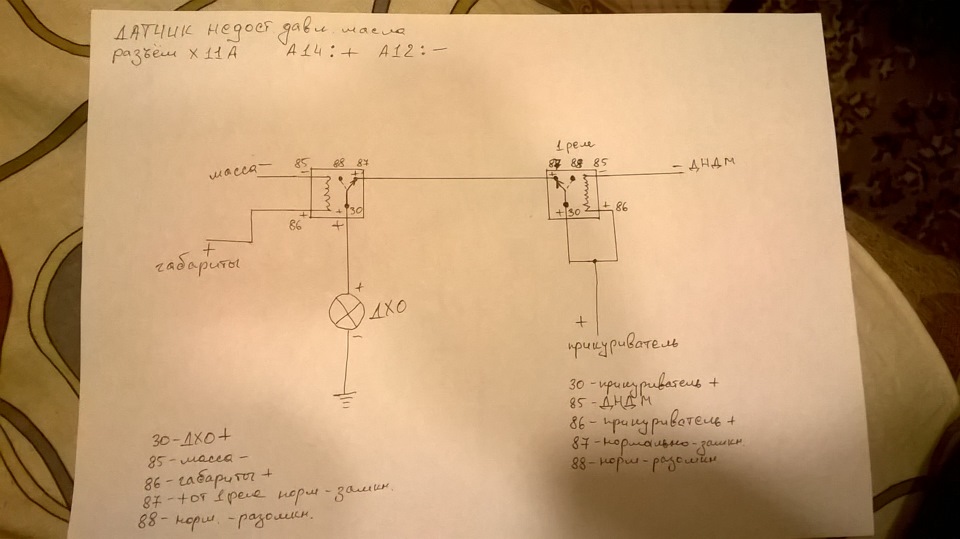 ДАТЧИК недост давл. масла
разъём X11A A14: + A12: -
1 реле
масса - 85 88 87
87 88 85 - ДНДМ
- + + -
86 + + 30
+ 30 + 86
+
+
габариты
+ ДХО
-
+
прикуриватель
30 - прикуриватель +
85 - ДНДМ
86 - прикуриватель +
87 - нормально-замкн.
88 - норм-разомкн
30 - ДХО +
85 - масса -
86 - габариты +
87 - + от 1 реле норм - замкн.
88 - норм. - разомкн.